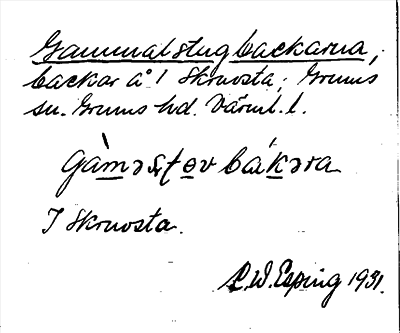 Gammalstugbackarna,
backar å 1 Skruvsta; Grums
sn. Grums hd. Värml. l.
I Skruvsta.
R.W. Esping 1931.